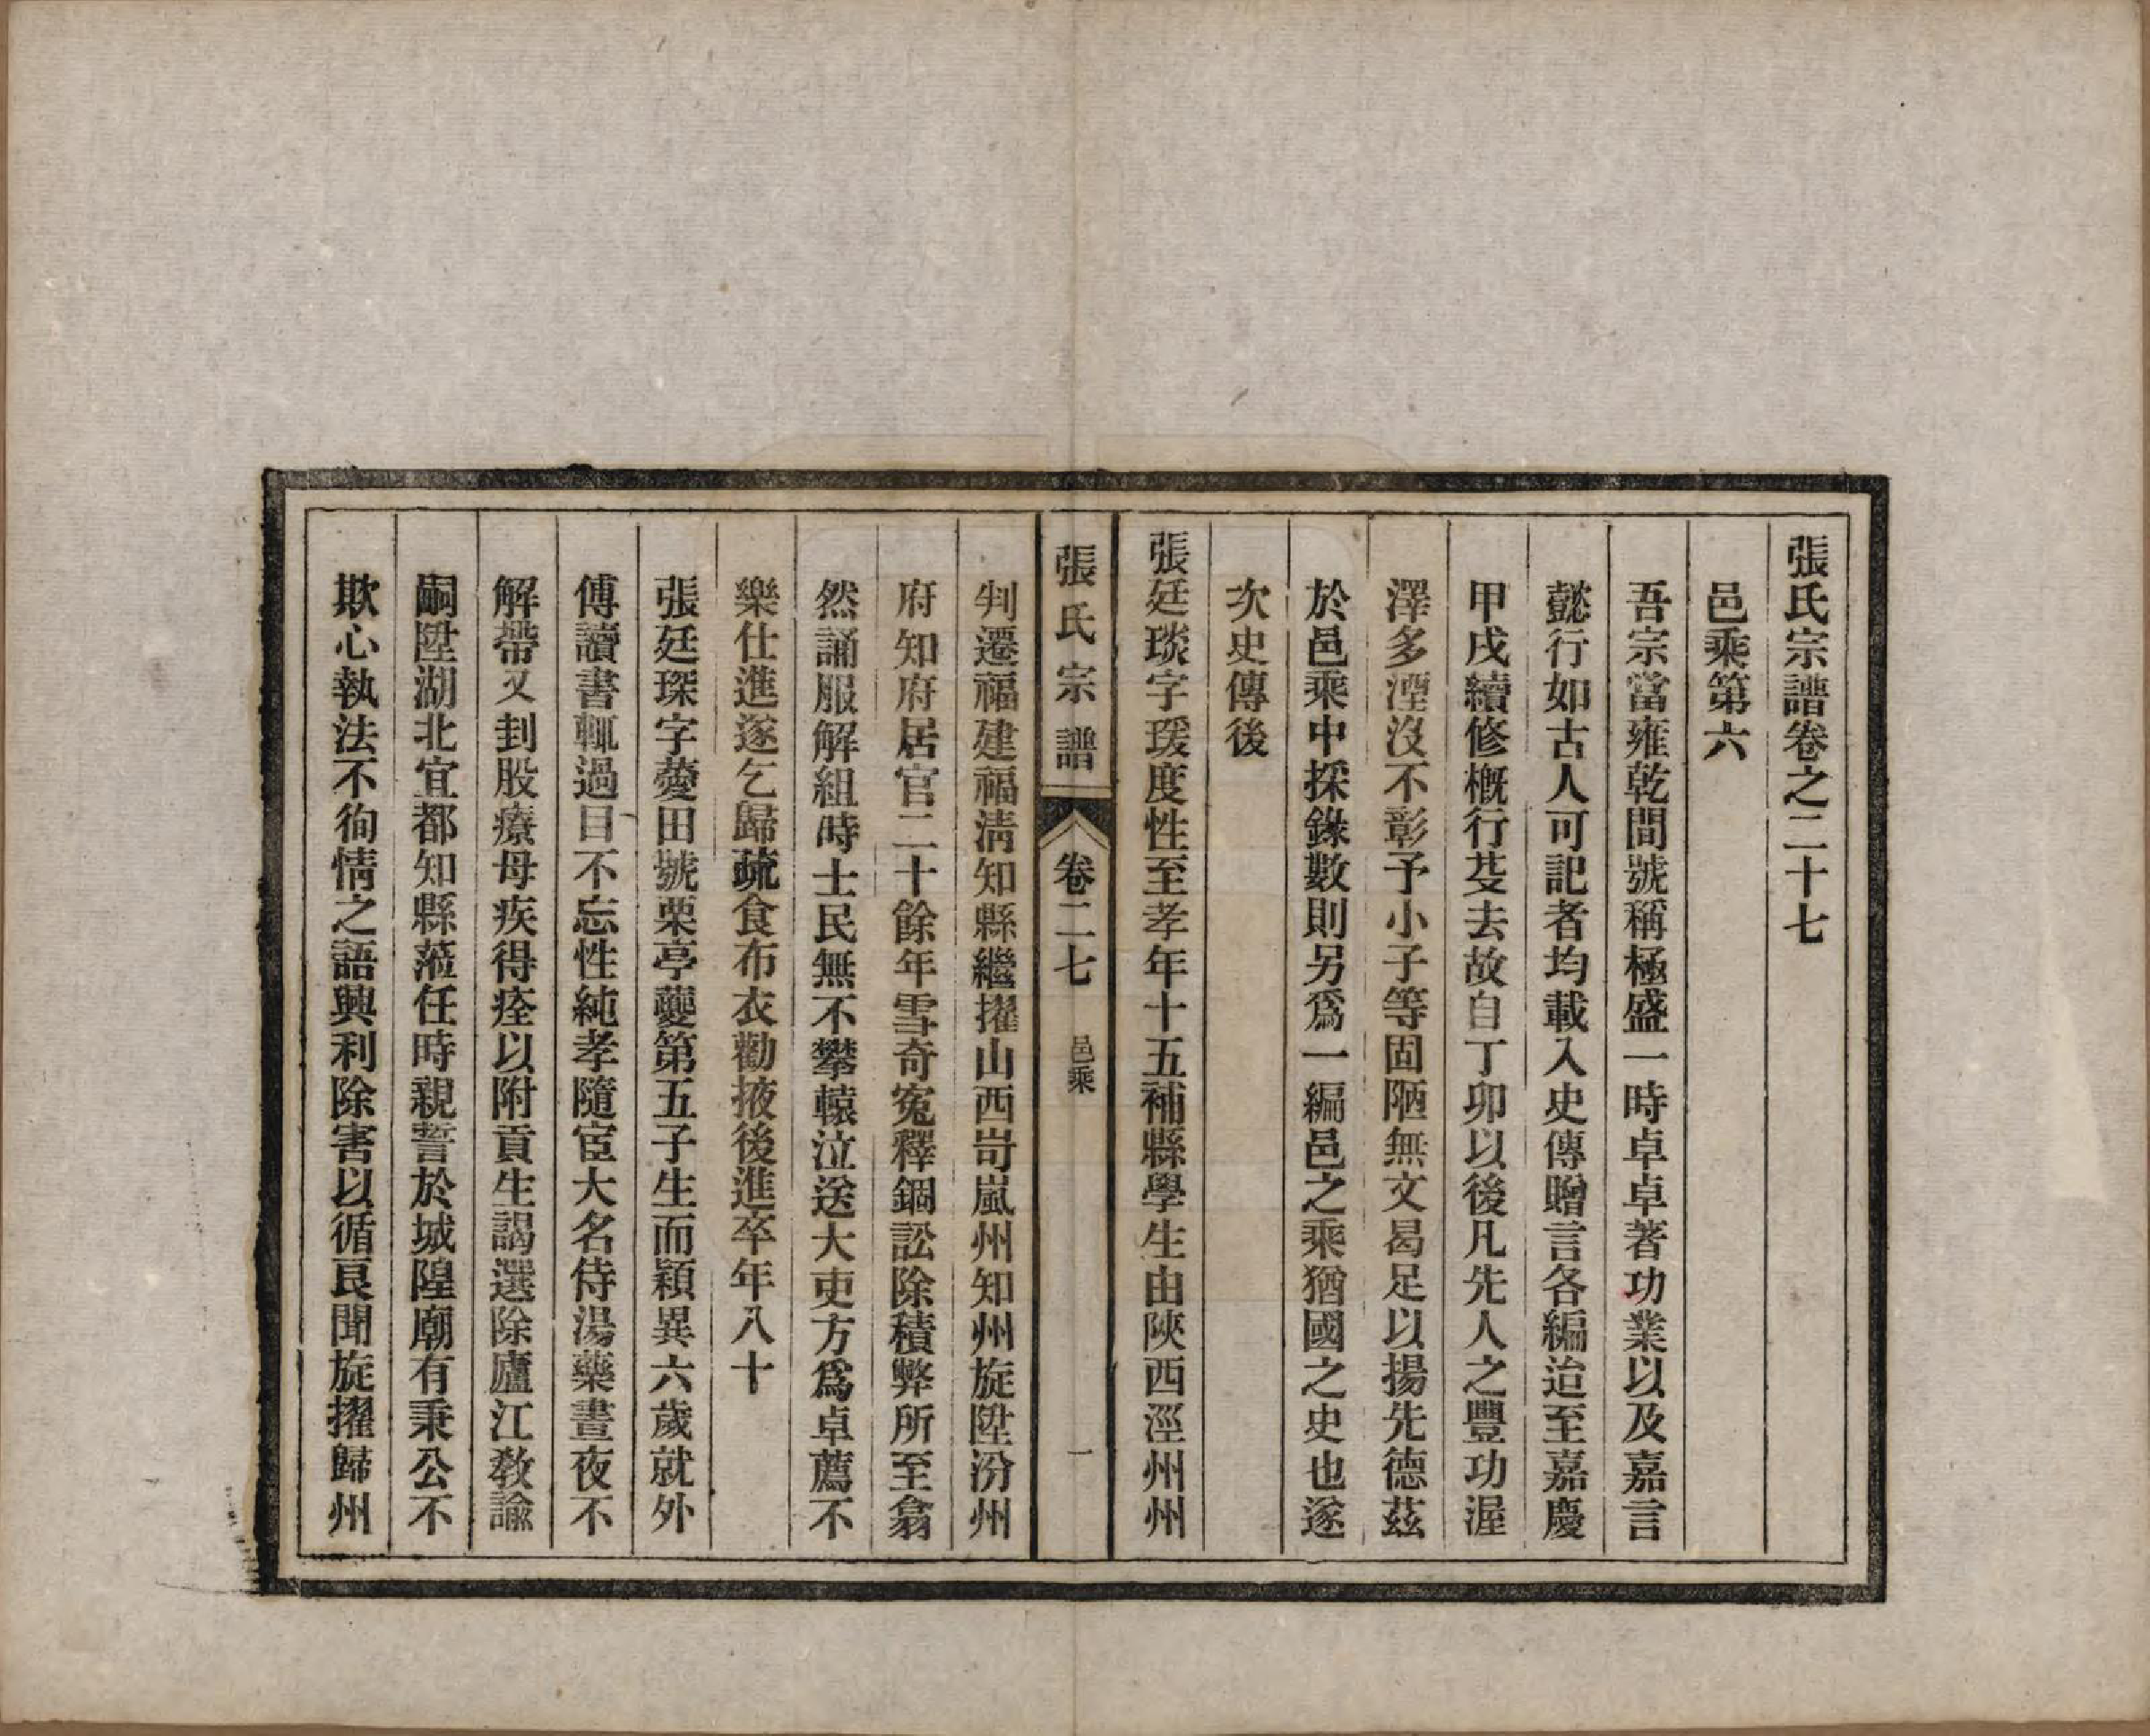 張氏宗譜卷之二十七
邑乘第六
吾宗當雍乾間號稱極盛一時卓卓著功業以及嘉言
懿行如古人可記者均載入史傳贈言各編迨至嘉慶
甲戌續修概行芟去故自丁卯以後凡先人之豐功渥
澤多湮沒不彰予小子等固陋無文曷足以揚先德茲
於邑乘中採錄數則另爲一編邑之乘猶國之史也遂
次史傳後
張廷琰字瑗度性至孝年十五補縣學生由陝西涇州州
張氏宗譜 卷二七 邑乘 一
判遷福建福淸知縣繼擢山西岢嵐州知州旋陞汾州
府知府居官二十餘年雪奇寃釋錮訟除積弊所至翕
然誦服解組時士民無不攀轅泣送大吏方爲卓薦不
樂仕進遂乞歸疏食布衣勸掖後進卒年八十
張廷琛字薆田號栗亭夔第五子生而穎異六歲就外
傅讀書輒過目不忘性純孝隨宦大名侍湯藥晝夜不
解帶又刲股療母疾得痊以附貢生謁選除廬江敎諭
嗣陞湖北宜都知縣蒞任時親誓於城隍廟有秉公不
欺心執法不徇情之語興利除害以循良聞旋擢歸州